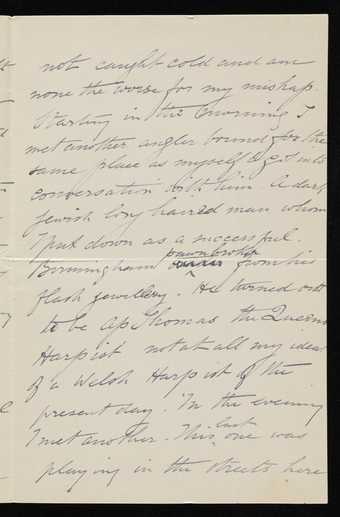 not caught cold and am
none the worse for my mishap.
Starting in the morning I
met another angler bound for the
same place as myself & got into
conversation with him. A dark
Jewish long haired man whom
I put down as a successful
Birmingham pawnbroker from his
flash jewellery. He turned out
to be Ap Thomas the Queens
Harpist not at all my idea
of a Welsh Harpist of the
present day. In the evening
I met another. This last one was
playing in the streets here